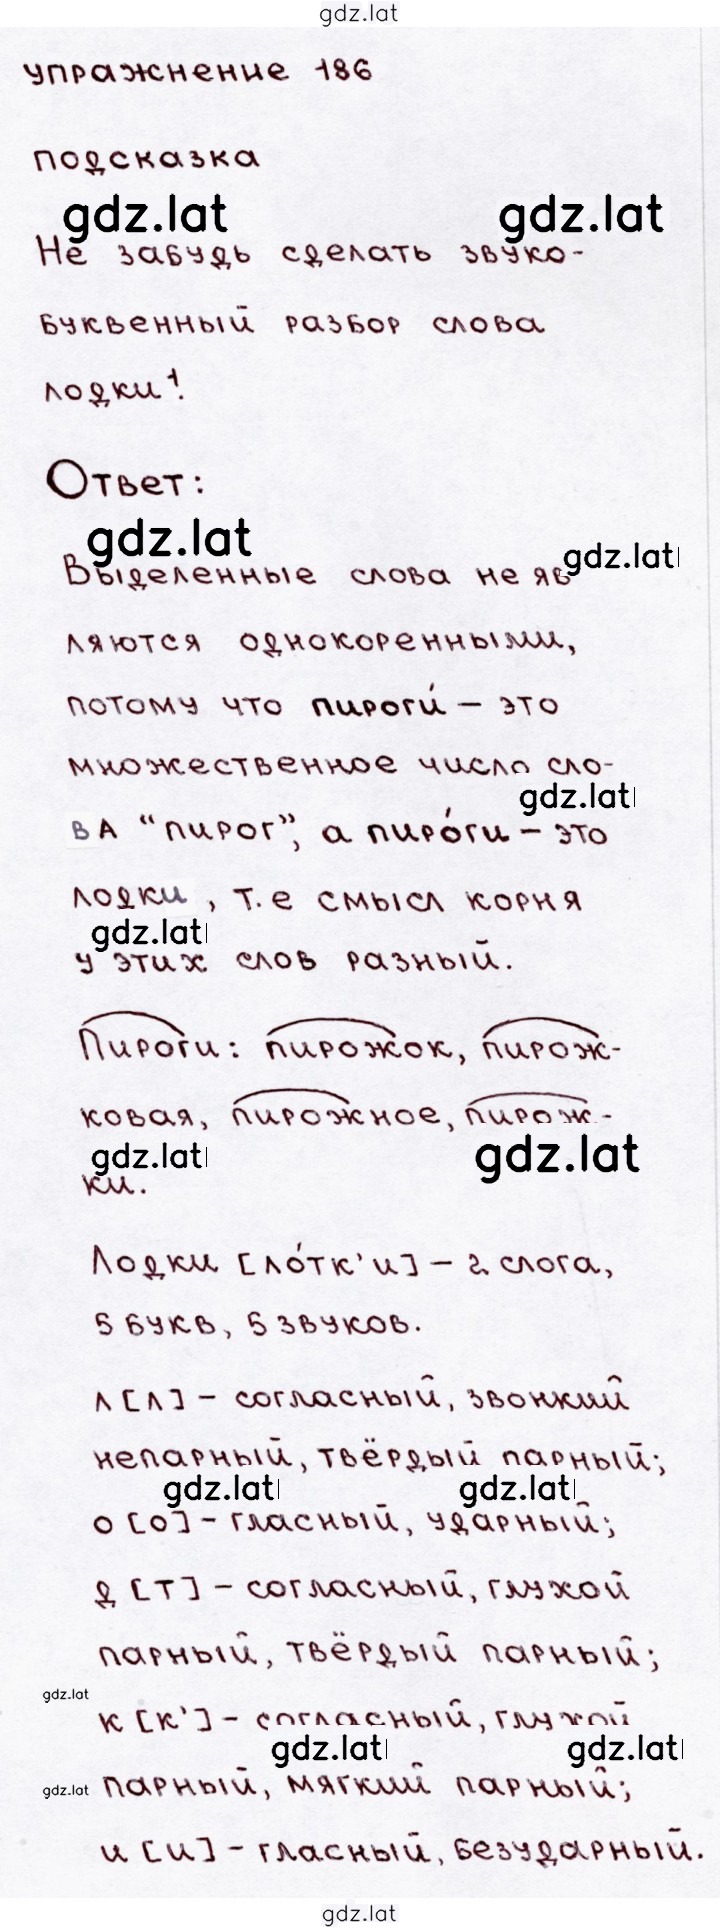 gdz.lat
упражнение 186
подсказка
gdz.lat gdz.lat
Не забудь сделать звуко-
буквенный разбор слова
лодки!
Ответ:
gdz.lat gdz.lat
Выделенные слова не яв
ляются однокоренными,
потому что пироги́ – это
множественное число сло-
gdz.lat
ва "пирог", а пиро́ги – это
лодки, т.е смысл корня
gdz.lat
у этих слов разный.
Пироги: пирожок, пирож-
ковая, пирожное, пирож-
gdz.lat gdz.lat
ки.
Лодки [ло́тк'и] – 2 слога,
5 букв, 5 звуков.
л [л] – согласный, звонкий
непарный, твёрдый парный;
gdz.lat gdz.lat
о [о] – гласный, ударный;
д [т] – согласный, глухой
парный, твёрдый парный;
gdz.lat
к [к'] – согласный, глухой
gdz.lat gdz.lat
gdz.lat парный, мягкий парный;
и [и] – гласный, безударный.
gdz.lat